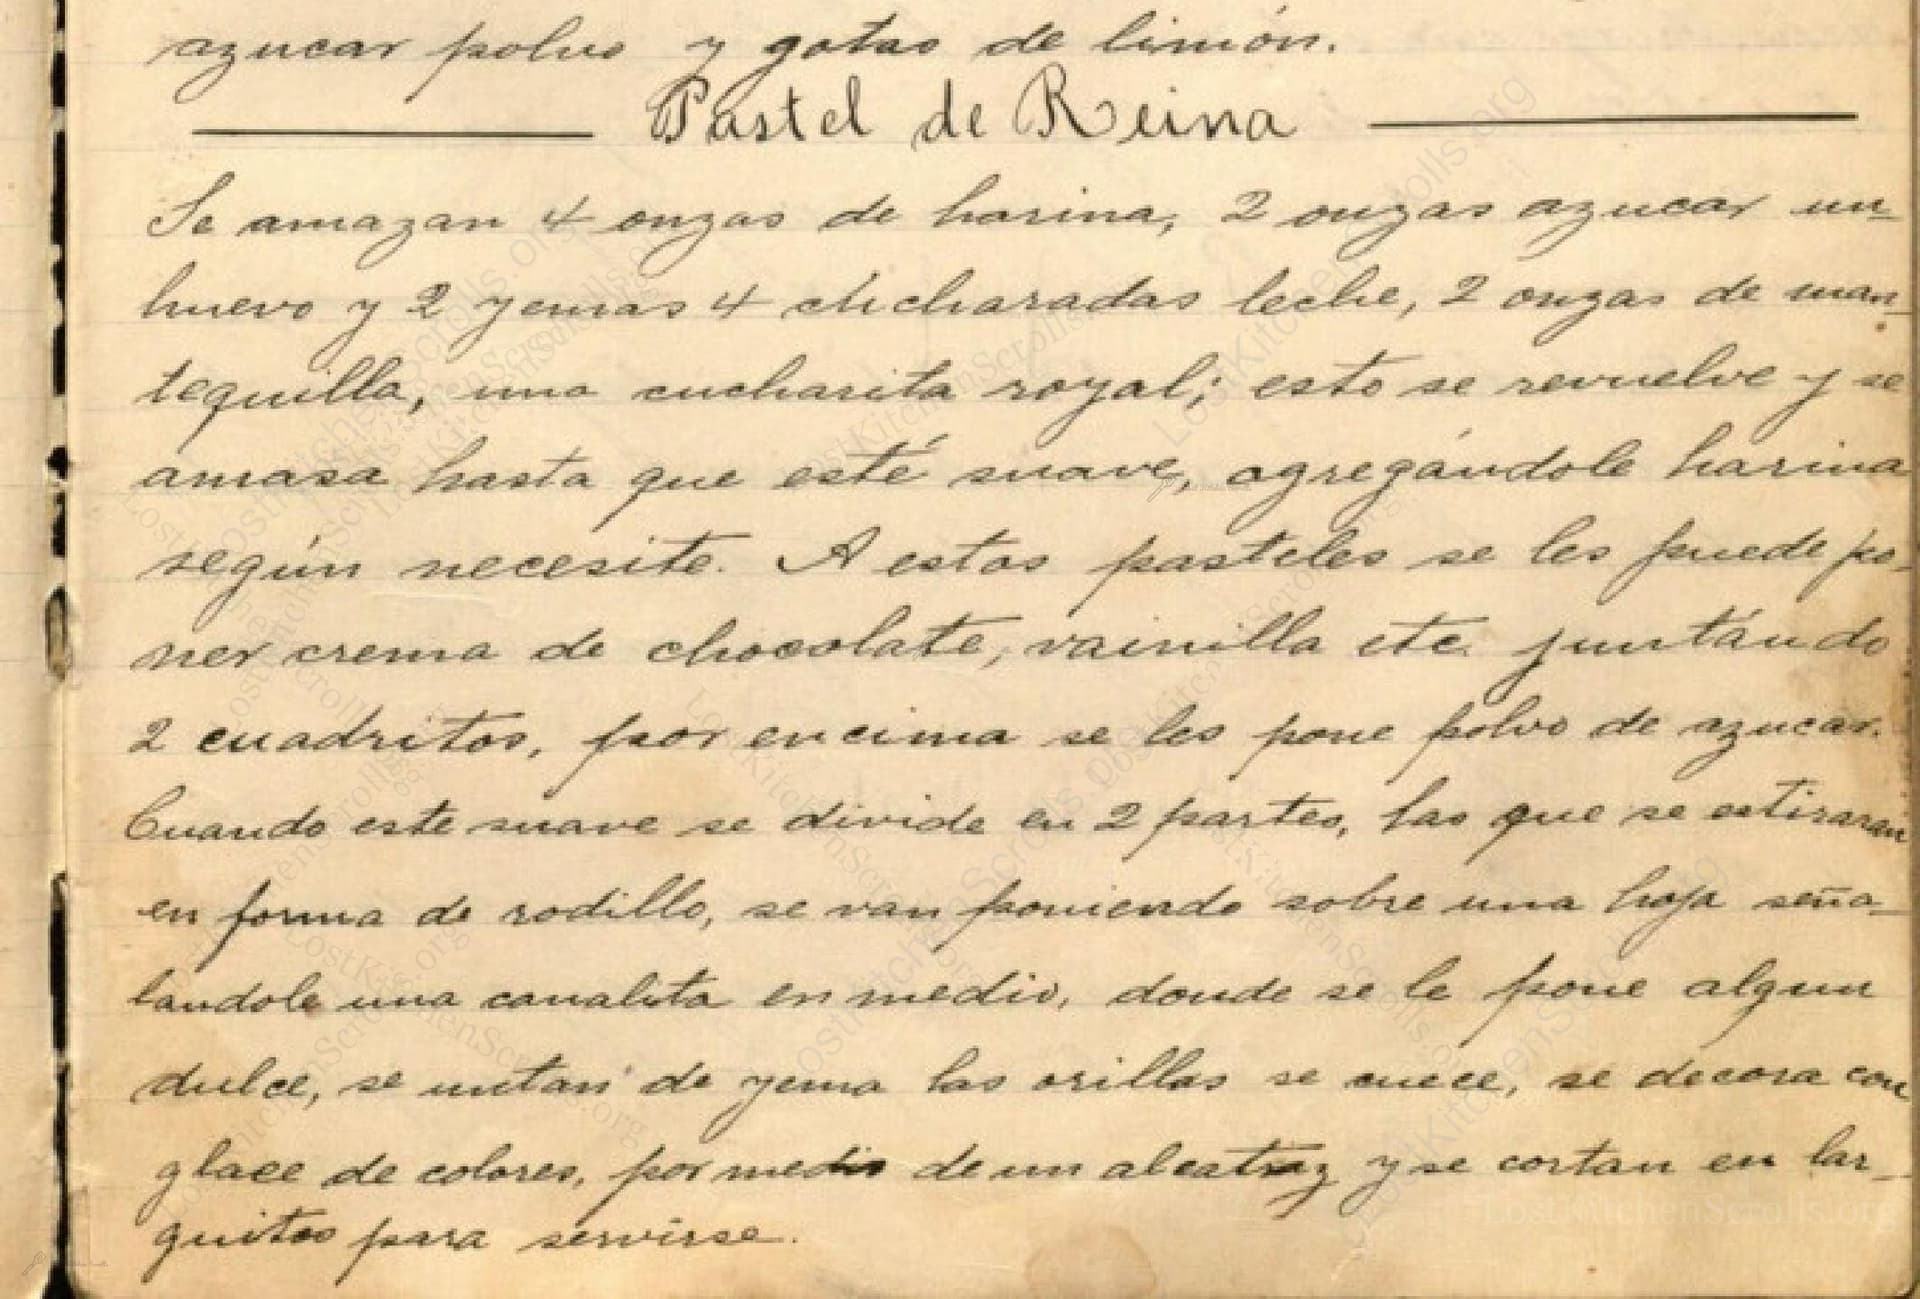 azucar polvo y gotas de limón.
Pastel de Reina
Se amazan 4 onzas de harina, 2 onzas azucar un
huevo y 2 yemas 4 chicharadas leche, 2 onzas de man-
tequilla, una cucharita royal; esto se revuelve y se
amasa hasta que esté suave, agregándole harina
según necesite. A estos pasteles se les puede po-
ner crema de chocolate, vainilla etc. juntándo
2 cuadritos, por encima se les pone polvo de azucar.
Cuando este suave se divide en 2 partes, las que se estiraran
en forma de rodillo, se van poniendo sobre una hoja seña-
landole una canalita en medio, donde se le pone algun
dulce, se untan de yema las orillas se cuece, se decora con
glace de colores, por medio de un alcatraz y se cortan en lar-
guitos para servirse.
LostKitchenScrolls.org